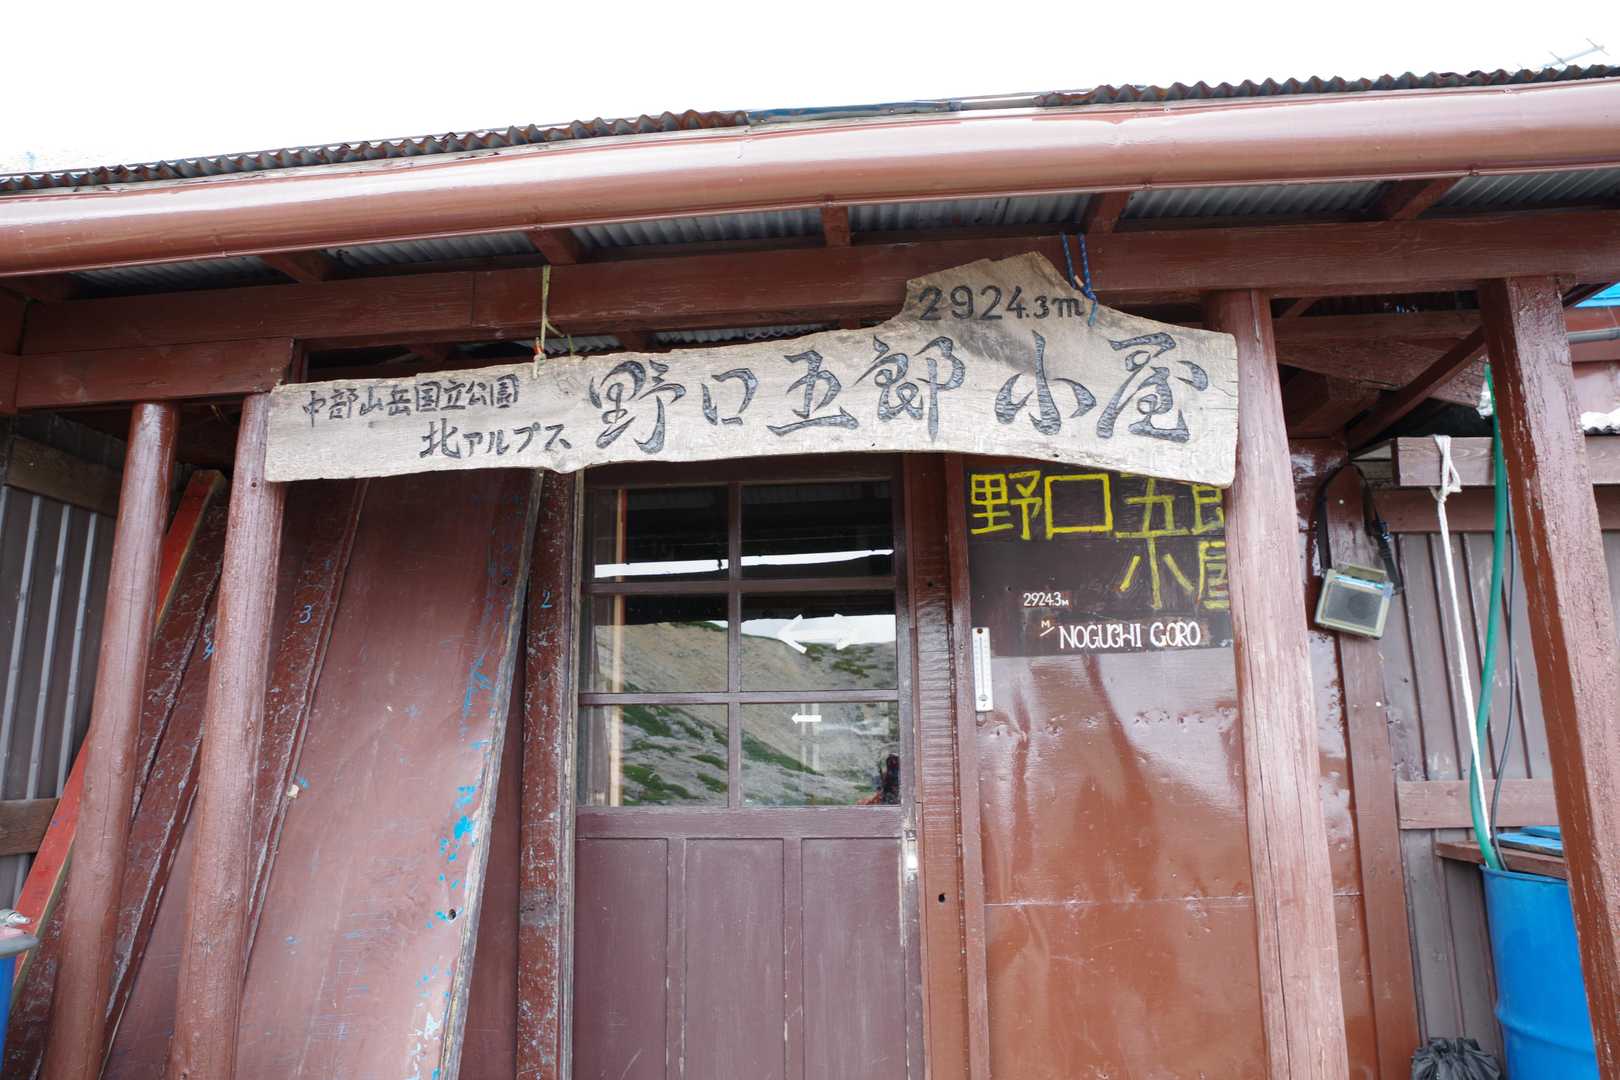 2924.3m
中部山岳国立公園
北アルプス
野口五郎小屋
野口五郎
小屋
2924.3M
M/ NOGUCHI GORO
3
2
4